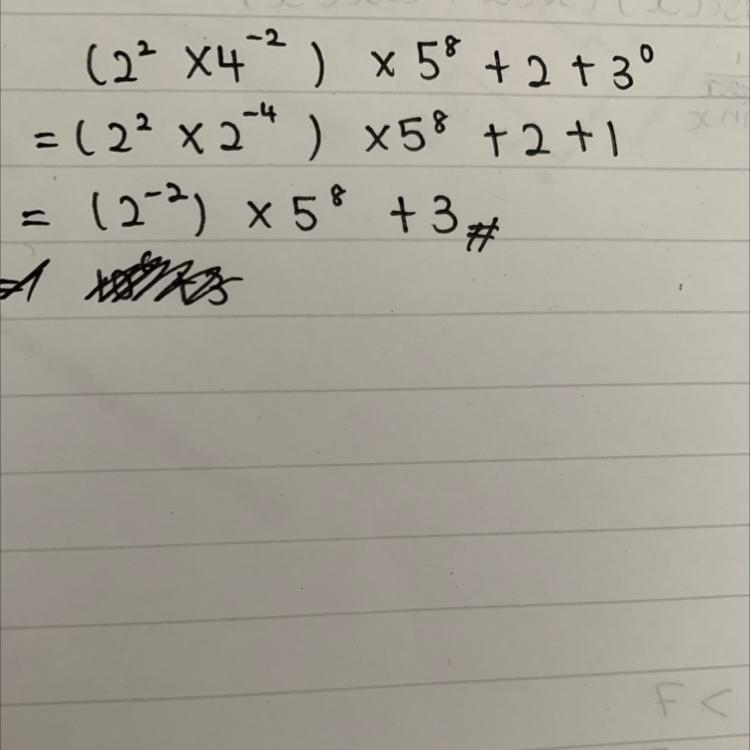 (2² × 4⁻²) × 5⁸ + 2 + 3⁰
= (2² × 2⁻⁴) × 5⁸ + 2 + 1
= (2⁻²) × 5⁸ + 3 #